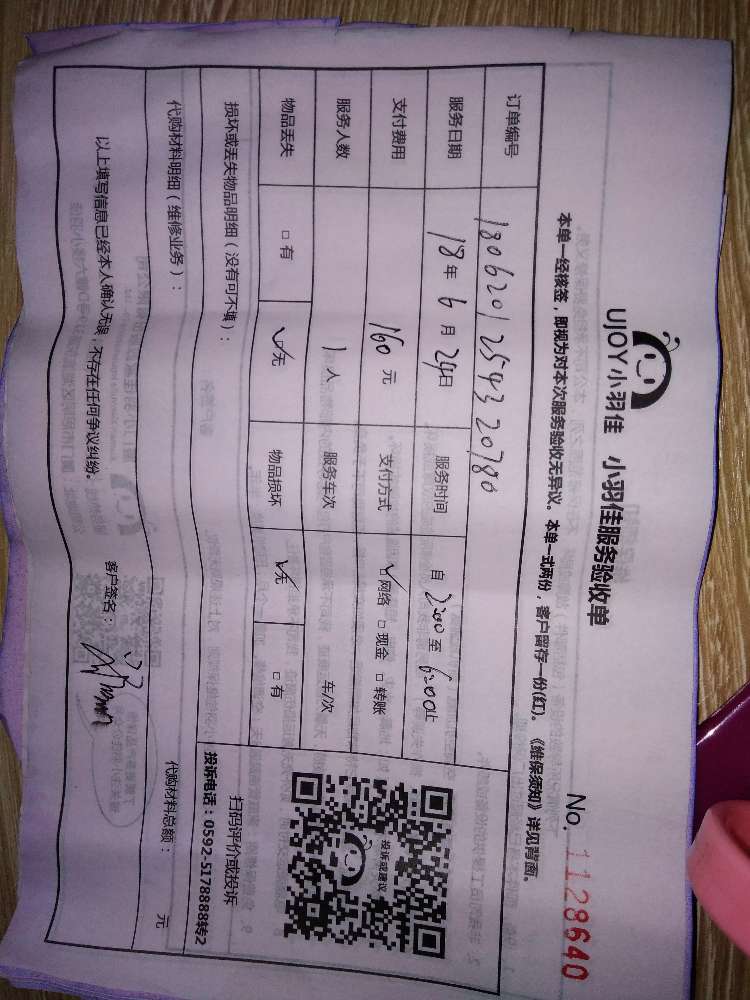 UJOY小羽佳 小羽佳服务验收单
No. 1128640
本单一经核签，即视为对本次服务验收无异议。本单一式两份，客户留存一份(红)。《维保须知》详见背面。
订单编号 1806201254320780
服务日期 18年6月24日 服务时间 自2:00至6:00止
支付费用 160元 支付方式 ☑网络 □现金 □转账
服务人数 1人 服务车次 车/次
物品丢失 □有 ☑无 物品损坏 ☑无 □有
损坏或丢失物品明细（没有可不填）：
投诉或建议
扫码评价或投诉
投诉电话：0592-5178888转2
代购材料明细（维修业务）： 代购材料总额： 元
以上填写信息已经本人确认无误，不存在任何争议纠纷。
客户签名：